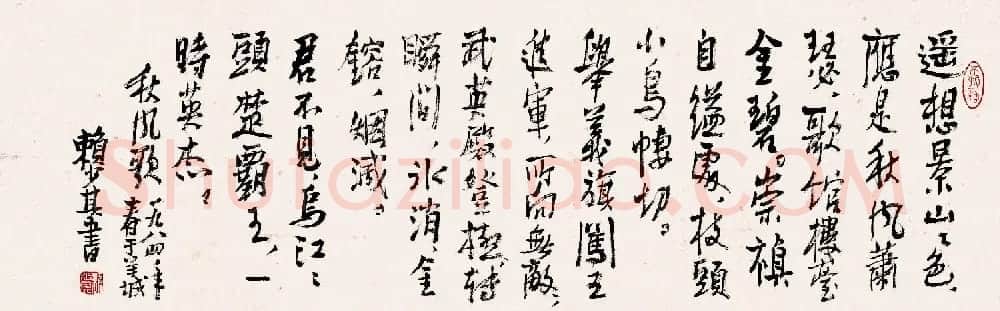 遥想景山〻色，
應是秋风蕭
瑟，歌馆樓臺
金碧。崇禎
自縊處，枝頭
小鳥悽切。
舉義旗闖王
進軍，所向無敵，
武英殿登極，转
瞬间，氷消，金
鎔，烟滅。
君不見，烏江〻
頭楚霸王，一
時英杰。
秋风歌 一九八四年
春于羊城
賴少其並書
Shufaziliao.COM